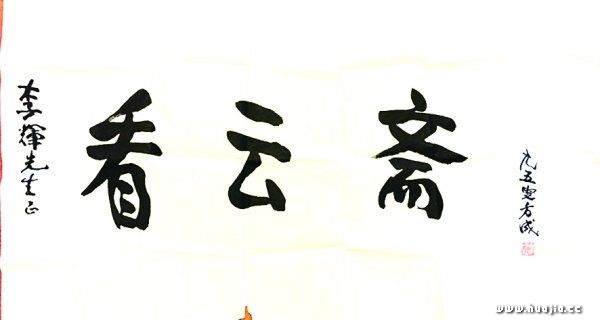 李辉先生正
看云斋
九五叟方成
www.huajia.cc